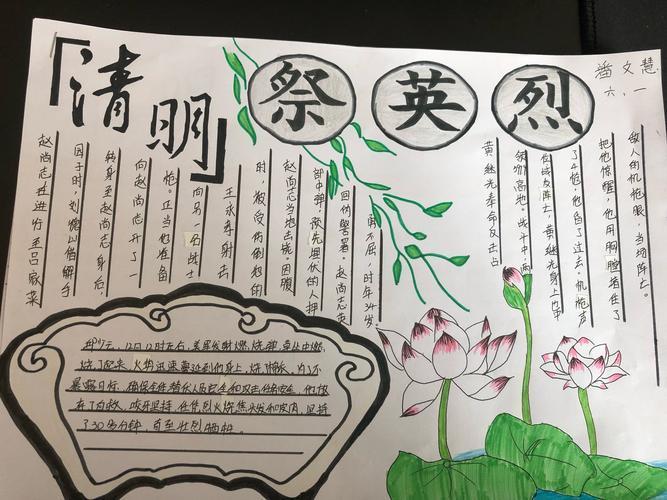 「清明」
祭英烈
潘文慧
六、一
赵尚志在进行至吕家菜
园子时，刘德山借解手
转身至赵尚志身后，
向赵尚志开了一
枪。正当他准备
向另一名战士
王永孝射击
时，被受伤倒地的
赵尚志当地击毙。因腹
部中弹，预先埋伏的人押
回伪警署。赵尚志英
勇不屈，时年34岁
黄继光奉命反击占
领的高地。战斗中两
位战友阵亡，黄继光身上也中
了4枪，他昏了过去。机枪声
把他惊醒，他用胸膛挡住了
敌人的机枪眼，当场阵亡。
邱少云，12日12时左右，美军发射燃烧弹，草丛中燃
烧了起来，火焰迅速蔓延到他身上，烧了棉衣，为了不
暴露目标，确保全体潜伏人员安全和攻击任务完全，他放
弃了自救，咬牙坚持，任凭烈火烧焦头发和皮肉，坚持
了30多分钟，直至壮烈牺牲。